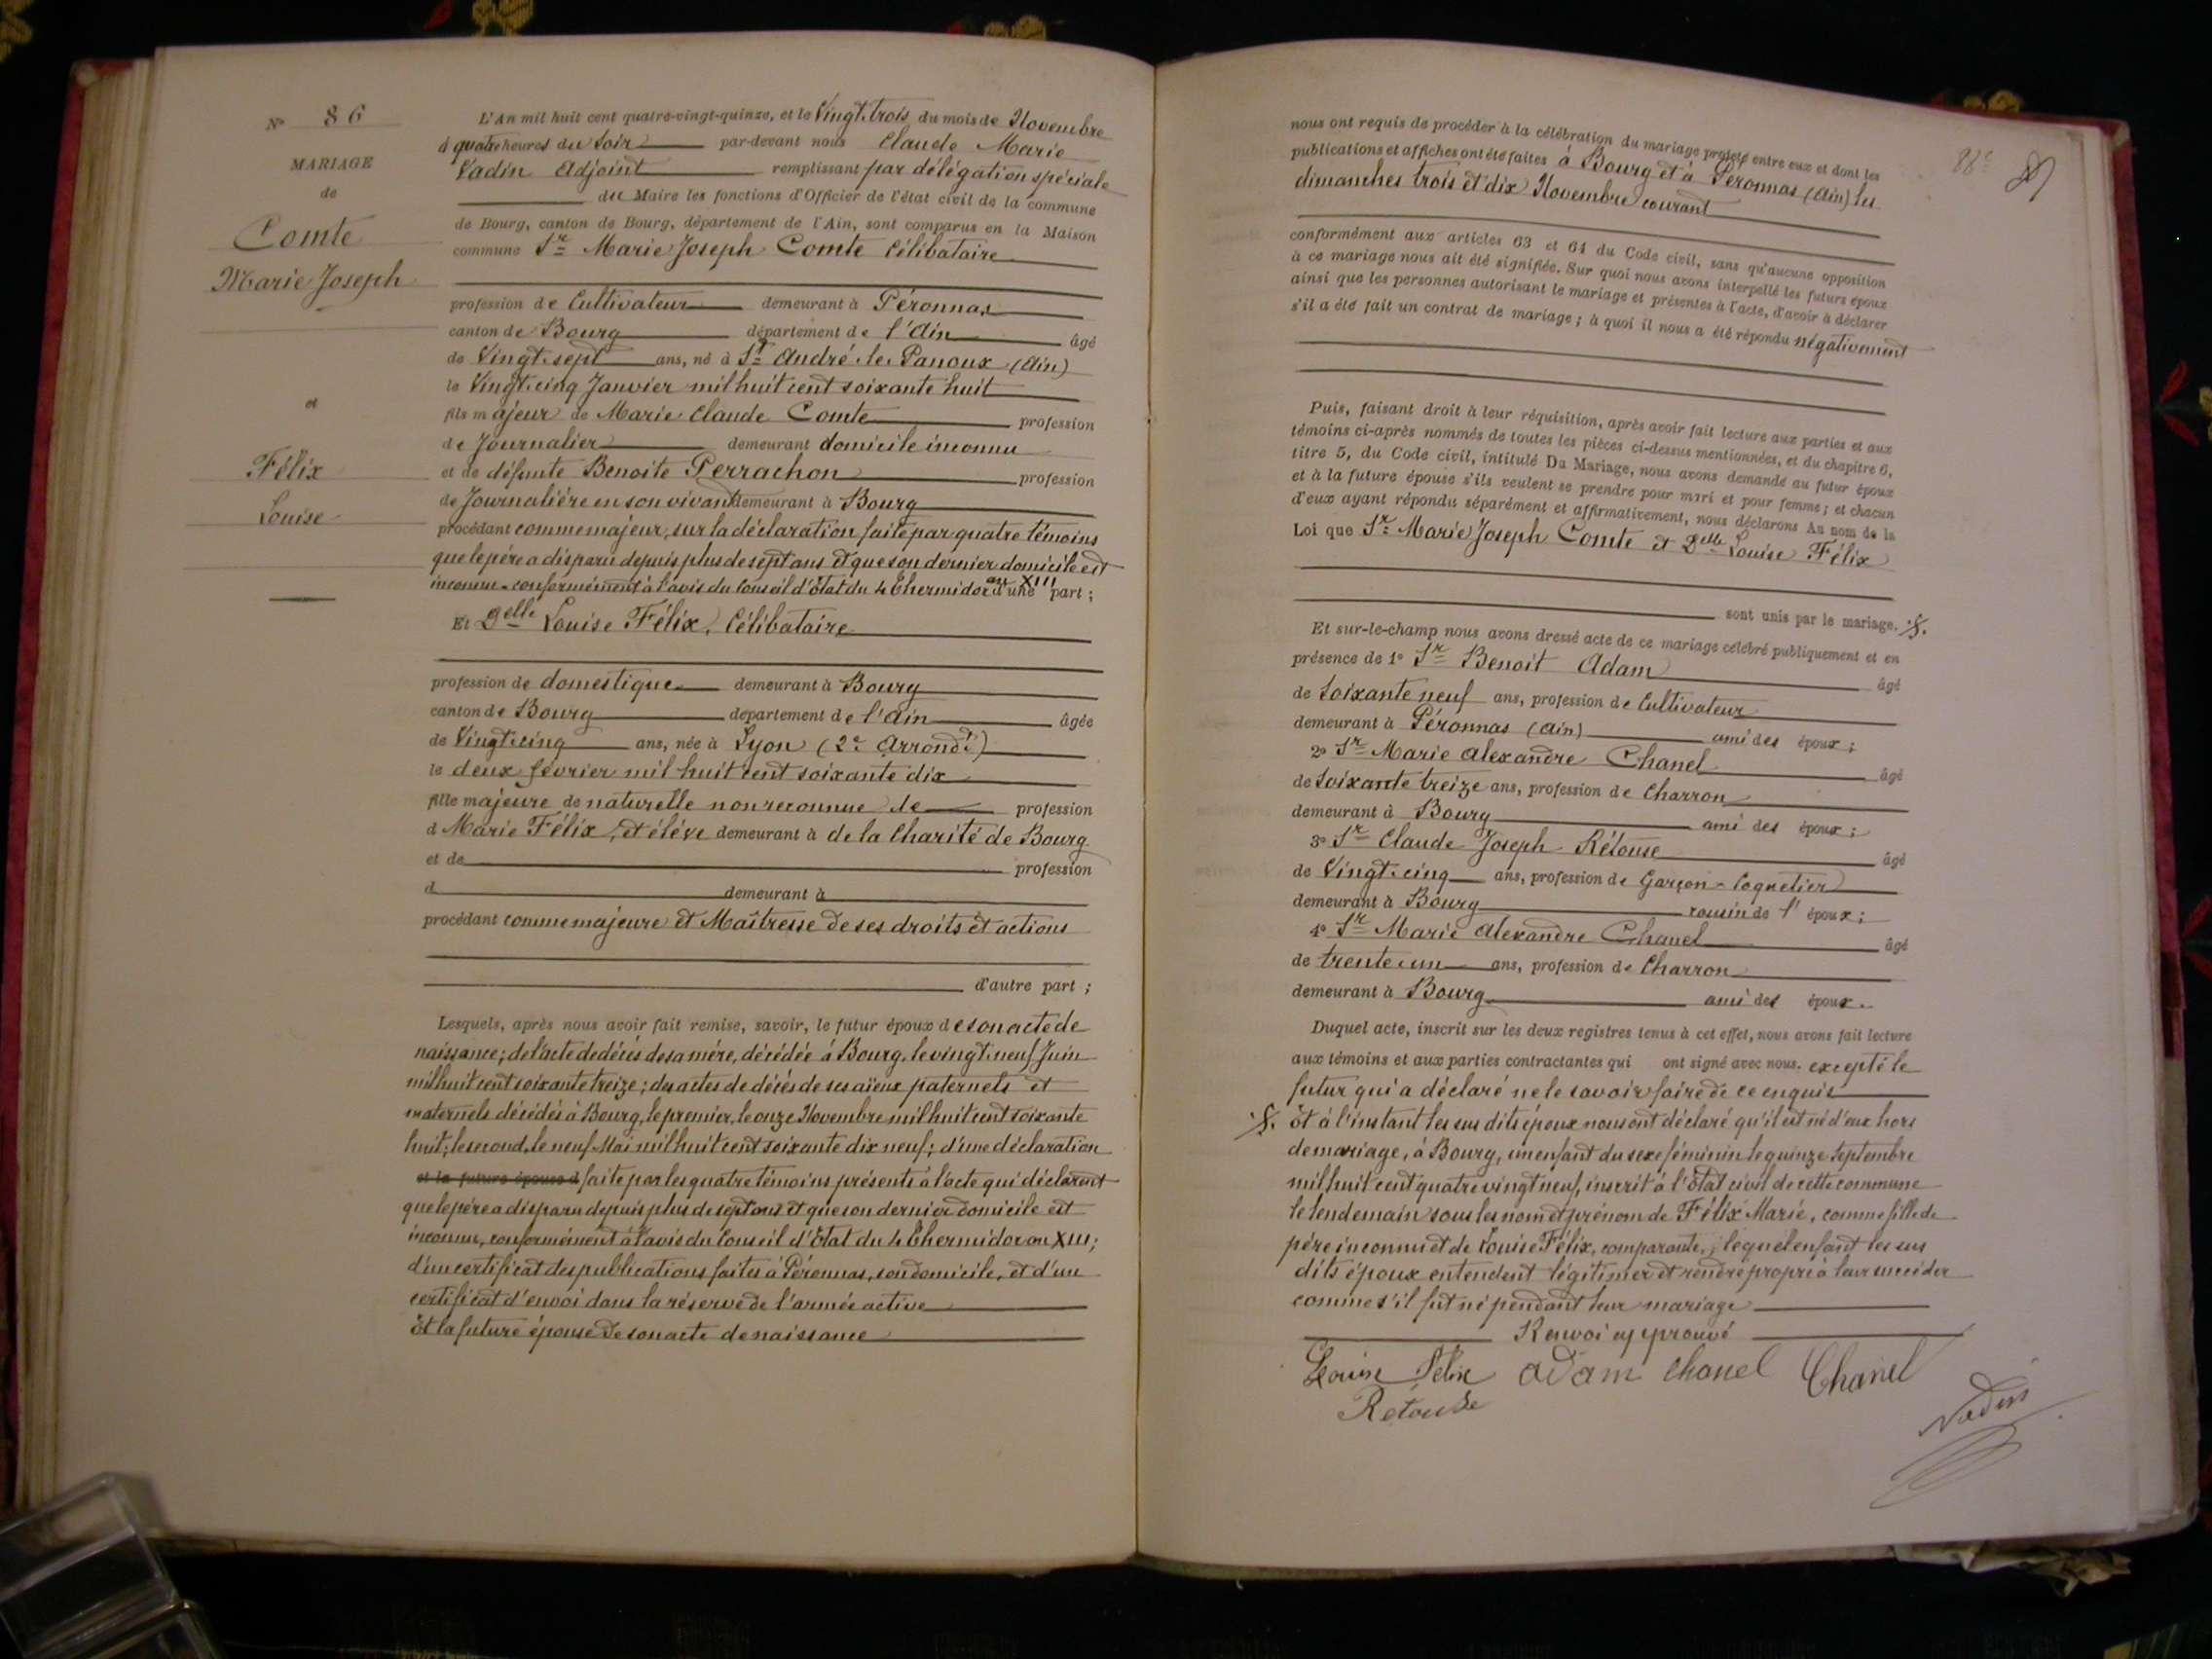 N° 86
MARIAGE
de
Comte
Marie Joseph
et
Félix
Louise
L'An mil huit cent quatre-vingt-quinze, et le Vingt-trois du mois de Novembre
à quatre heures du Soir par-devant nous Claude Marie
Vadin Adjoint remplissant par délégation spéciale
du Maire les fonctions d'Officier de l'état civil de la commune
de Bourg, canton de Bourg, département de l'Ain, sont comparus en la Maison
commune Sr Marie Joseph Comte Célibataire
profession de Cultivateur demeurant à Péronnas
canton de Bourg département de l'Ain âgé
de Vingt-sept ans, né à St André-le-Panoux (Ain)
le Vingt-cinq Janvier mil huit cent soixante huit
fils majeur de Marie Claude Comte profession
de Journalier demeurant domicile inconnu
et de défunte Benoite Perrachon profession
de Journalière en son vivant demeurant à Bourg
procédant comme majeur, sur la déclaration faite par quatre témoins
que le père a disparu depuis plus de sept ans et que son dernier domicile est
inconnu - conformément à l'avis du Conseil d'Etat du 4 Thermidor an XIII d'une part ;
Et Delle Louise Félix, Célibataire
profession de domestique demeurant à Bourg
canton de Bourg département de l'Ain âgée
de Vingt-cinq ans, née à Lyon (2e Arrondt)
le deux février mil huit cent soixante dix
fille majeure de naturelle non reconnue de profession
d Marie Félix, et élève demeurant à de la Charité de Bourg
et de profession
d demeurant à
procédant comme majeure et Maîtresse de ses droits et actions
d'autre part ;
Lesquels, après nous avoir fait remise, savoir, le futur époux de son acte de
naissance ; de l'acte de décès de sa mère, décédée à Bourg, le vingt-neuf Juin
mil huit cent soixante treize ; des actes de décès de ses aïeux paternels et
maternels décédés à Bourg, le premier, le onze Novembre mil huit cent soixante
huit ; le second, le neuf Mai mil huit cent soixante dix neuf ; d'une déclaration
et la future épouse d faite par les quatre témoins présents à l'acte qui déclarent
que le père a disparu depuis plus de sept ans et que son dernier domicile est
inconnu, conformément à l'avis du Conseil d'Etat du 4 Thermidor an XIII ;
d'un certificat des publications faites à Péronnas, son domicile, et d'un
certificat d'envoi dans la réserve de l'armée active
Et la future épouse de son acte de naissance
nous ont requis de procéder à la célébration du mariage projeté entre eux et dont les
publications et affiches ont été faites à Bourg et à Péronnas (Ain) les
dimanches trois et dix Novembre courant
conformément aux articles 63 et 64 du Code civil, sans qu'aucune opposition
à ce mariage nous ait été signifiée. Sur quoi nous avons interpellé les futurs époux
ainsi que les personnes autorisant le mariage et présentes à l'acte, d'avoir à déclarer
s'il a été fait un contrat de mariage ; à quoi il nous a été répondu négativement
Puis, faisant droit à leur réquisition, après avoir fait lecture aux parties et aux
témoins ci-après nommés de toutes les pièces ci-dessus mentionnées, et du chapitre 6,
titre 5, du Code civil, intitulé Du Mariage, nous avons demandé au futur époux
et à la future épouse s'ils veulent se prendre pour mari et pour femme ; et chacun
d'eux ayant répondu séparément et affirmativement, nous déclarons Au nom de la
Loi que Sr Marie Joseph Comte et Delle Louise Félix
sont unis par le mariage. §.
Et sur-le-champ nous avons dressé acte de ce mariage célébré publiquement et en
présence de 1° Sr Benoit Adam âgé
de Soixante neuf ans, profession de Cultivateur
demeurant à Péronnas (Ain) ami des époux ;
2° Sr Marie Alexandre Chanel âgé
de Soixante treize ans, profession de Charron
demeurant à Bourg ami des époux ;
3° Sr Claude Joseph Rétouse âgé
de Vingt-cinq ans, profession de Garçon-Coquetier
demeurant à Bourg cousin de l' époux ;
4° Sr Marie Alexandre Chanel âgé
de trente-un ans, profession de Charron
demeurant à Bourg ami des époux.
Duquel acte, inscrit sur les deux registres tenus à cet effet, nous avons fait lecture
aux témoins et aux parties contractantes qui ont signé avec nous. excepté le
futur qui a déclaré ne le savoir faire de ce enquis
§. Et à l'instant les sus dits époux nous ont déclaré qu'il est né d'eux hors
de mariage, à Bourg, un enfant du sexe féminin le quinze Septembre
mil huit cent quatre vingt neuf, inscrit à l'Etat civil de cette commune
le lendemain sous les nom et prénom de Félix Marie, comme fille de
père inconnu et de Louise Félix, comparante, ; lequel enfant les sus
dits époux entendent légitimer et rendre propre à leur succéder
comme s'il fut né pendant leur mariage
Renvoi approuvé
Louise Félix Adam Chanel Chanel
Rétouse
Vadin